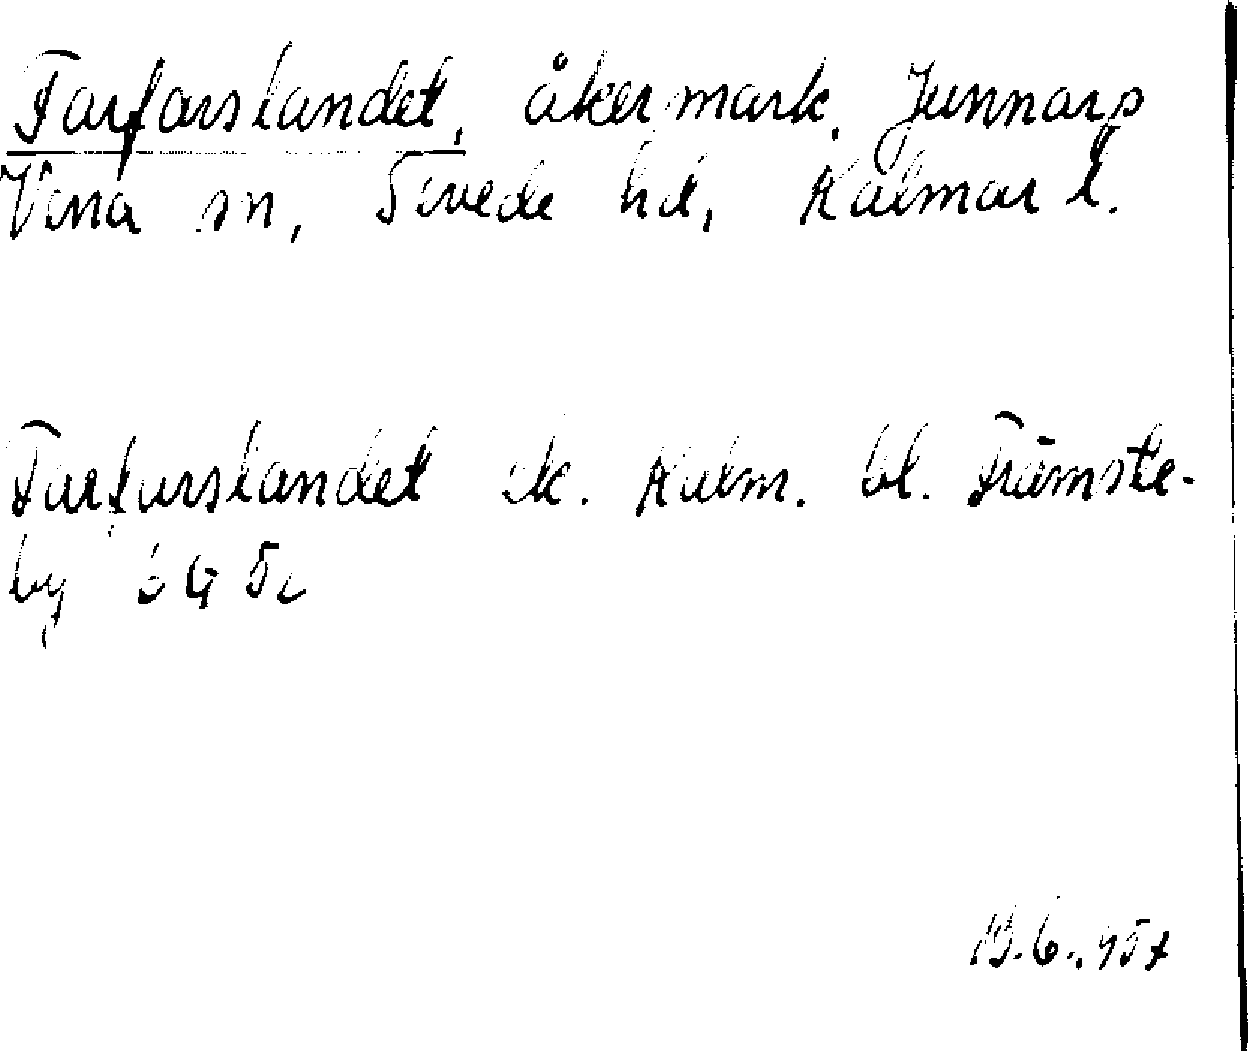 Farfarslandet, åkermark, Junnarp
Vena sn, Sevede hd, Kalmar l.
Farfarslandet ek. Kalm. bl. Främste-
by 6G 5c